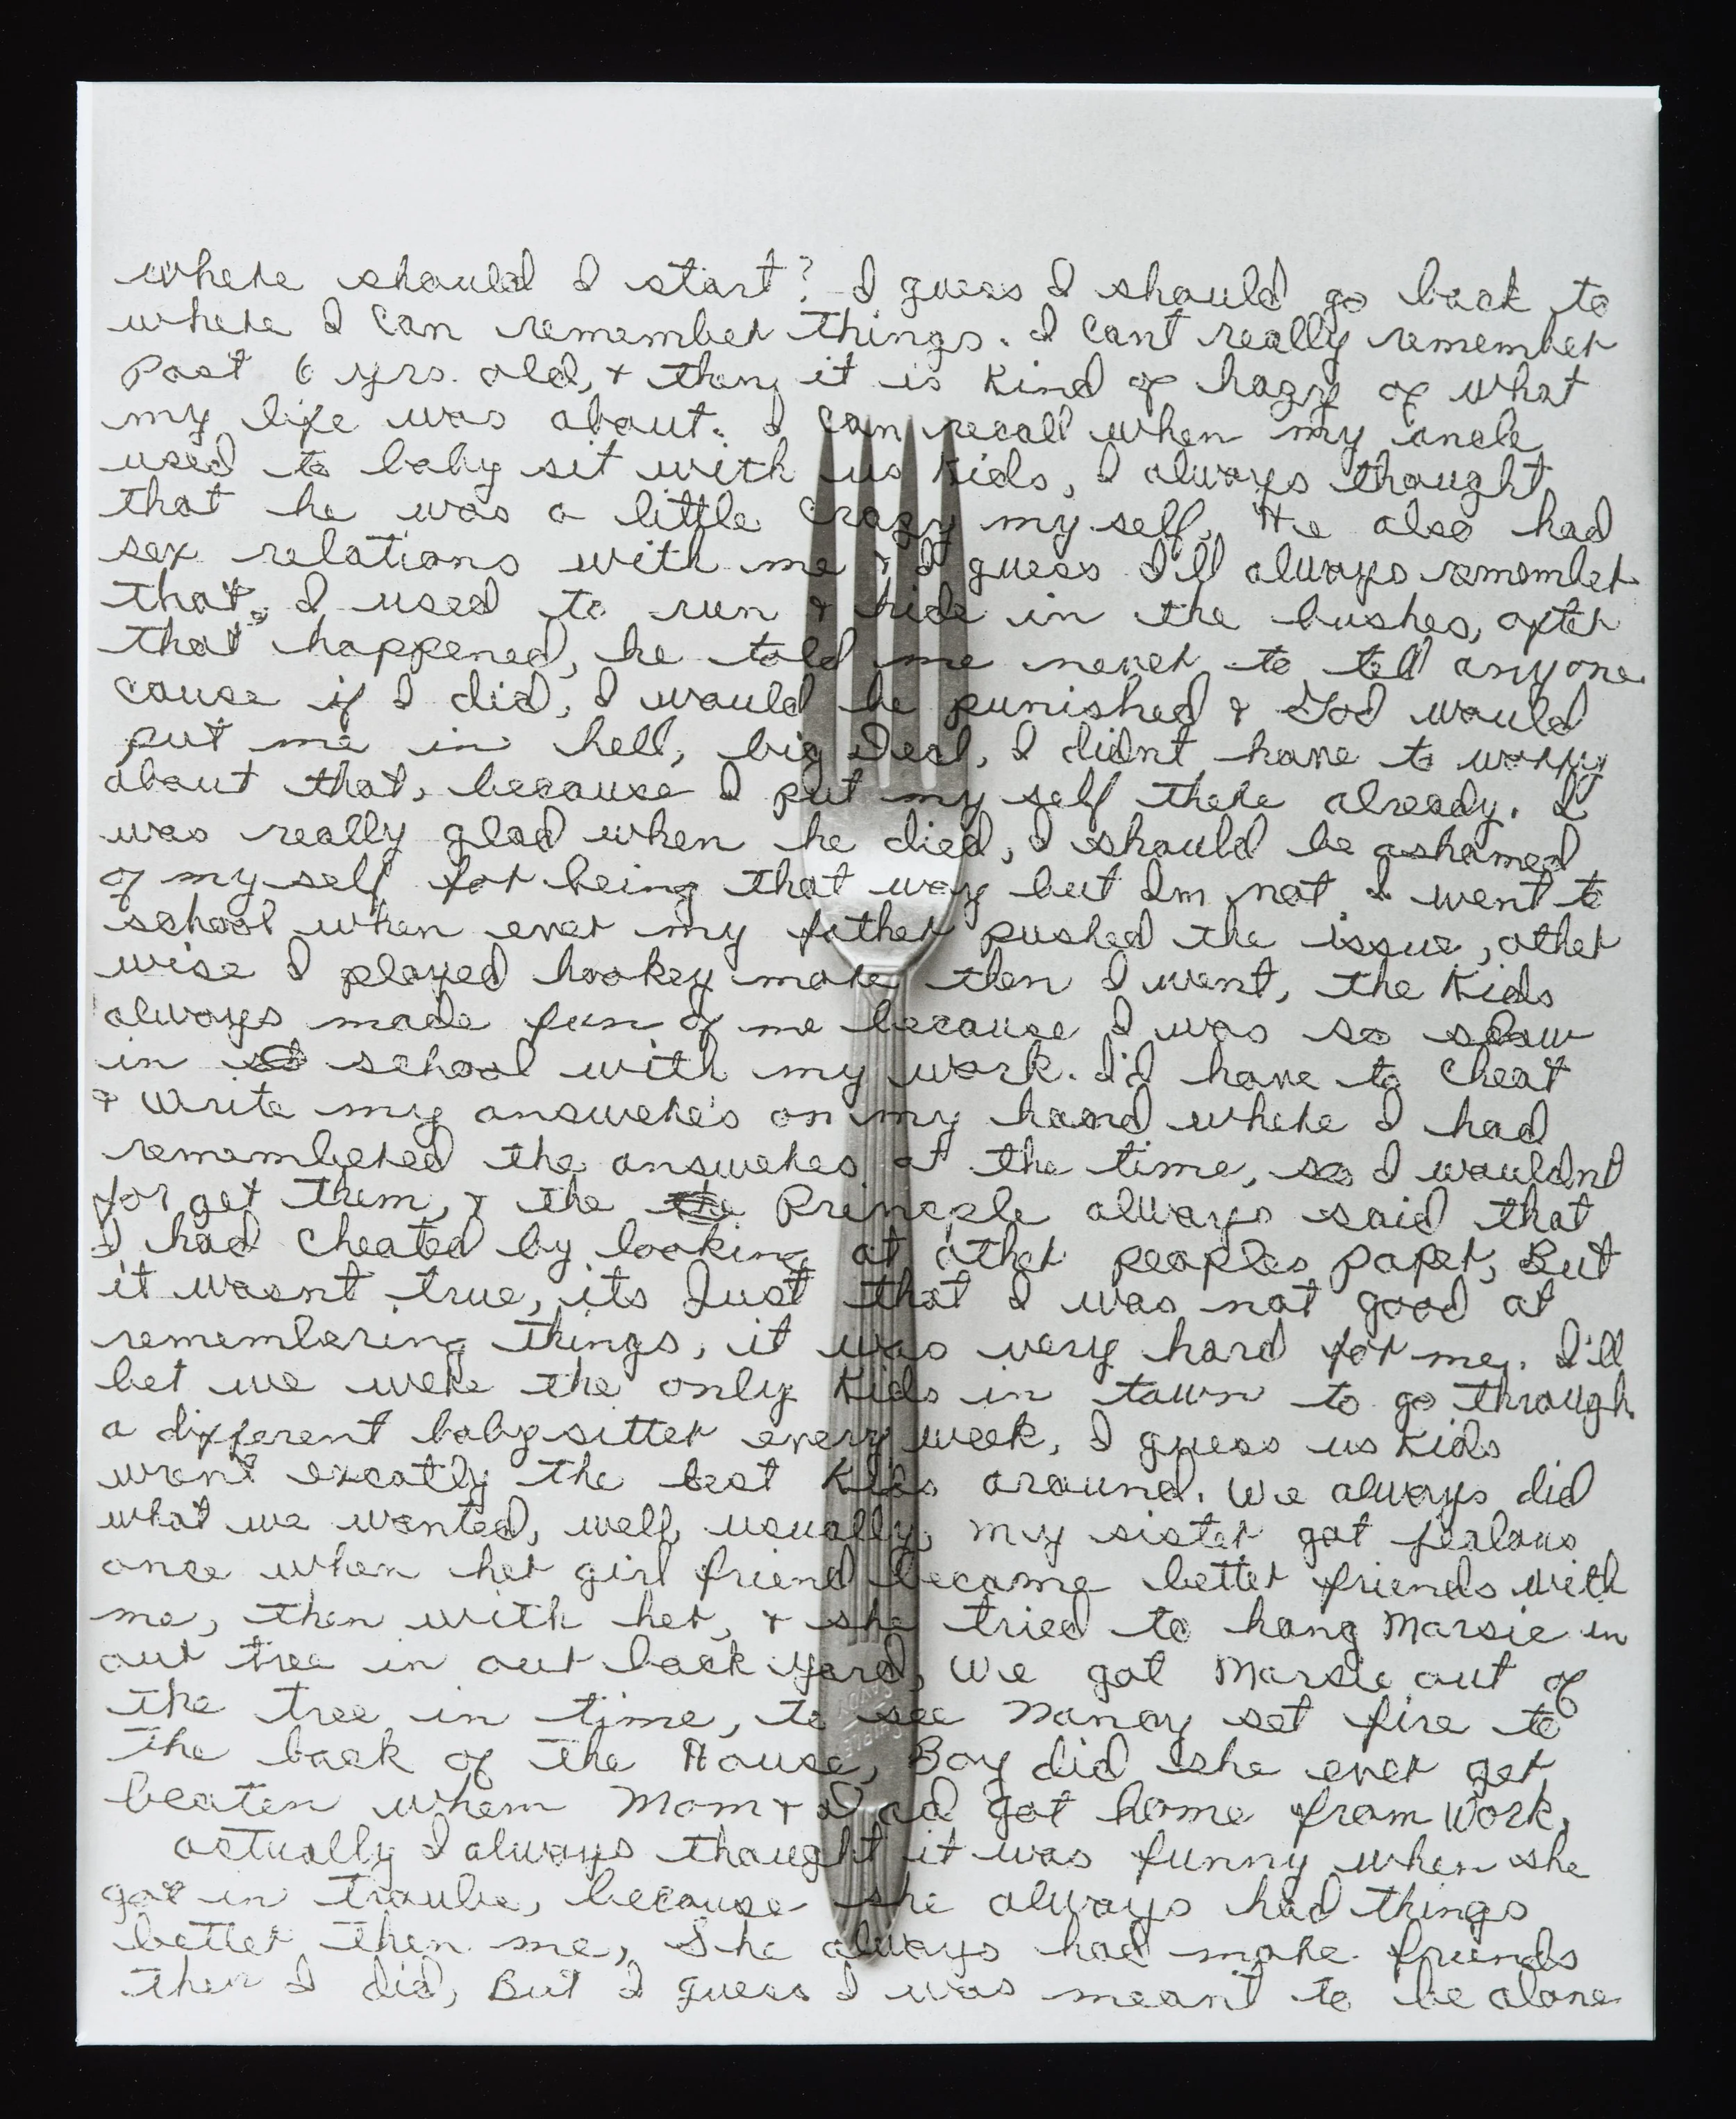 where should I start? I guess I should go back to
where I can remember things. I cant really remember
Past 6 yrs. old, & then it is Kind of hazy of what
my life was about. I can recall when my uncle
used to baby sit with us Kids, I always thought
that he was a little crazy my self. He also had
sex relations with me & I guess I'll always remember
that. I used to run & hide in the bushes, after
that happened, he told me never to tell anyone
cause if I did, I would be punished & God would
put me in hell, big Deal, I didnt have to worry
about that, because I put my self there already. I
was really glad when he died, I should be ashamed
of my self for being that way but Im not I went to
school when ever my father pushed the issue, other
wise I played hookey more then I went, the Kids
always made fun of me because I was so slow
in school with my work. I'd have to cheat
& write my answere's on my hand where I had
remembered the answeres at the time, so I wouldnt
for get them, & the Principle always said that
I had cheated by looking at other peoples paper, But
it wasnt true, its Just that I was not good at
remembering things, it was very hard for me. I'll
bet we were the only Kids in town to go through
a different babysitter every week, I guess us Kids
wernt excatly the best Kids around. We always did
what we wanted, well, usually, my sister got jealous
once when her girl friend became better friends with
me, then with her, & she tried to hang Marsie in
our tree in our back yard, we got Marsie out of
the tree in time, to see Nancy set fire to
the back of the House, Boy did she ever get
beaten when Mom & Dad got home from work,
actually I always thought it was funny when she
got in trouble, because she always had things
better then me, She always had more friends
then I did, But I guess I was meant to be alone